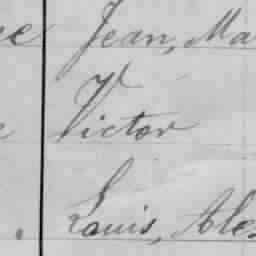 Jean, Ma
Victor
Louis, Ale